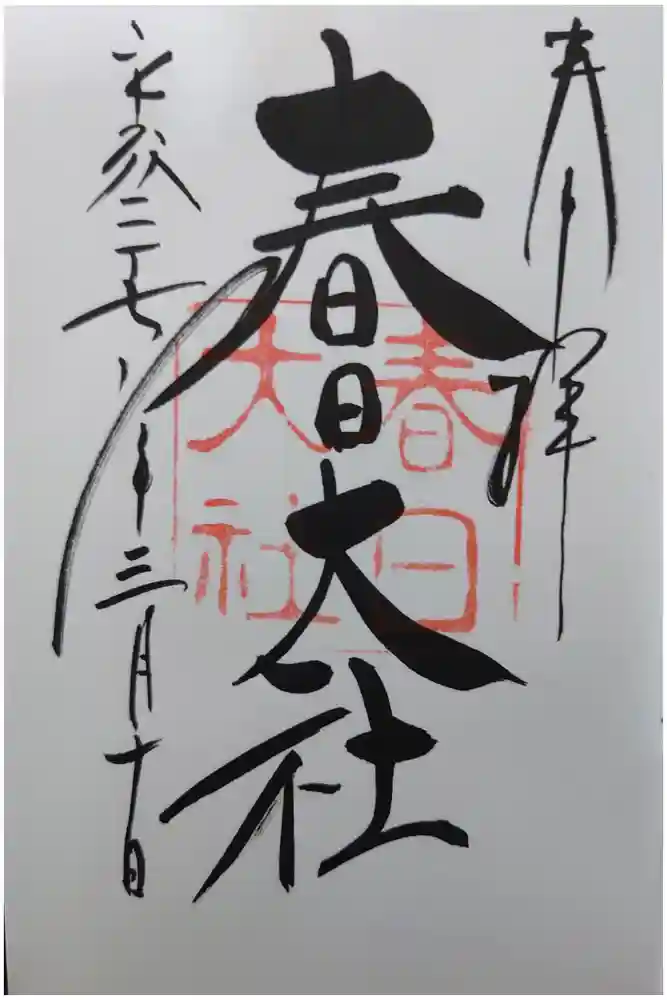 奉拝
春日大社
春日
大社
平成二十七年三月十日